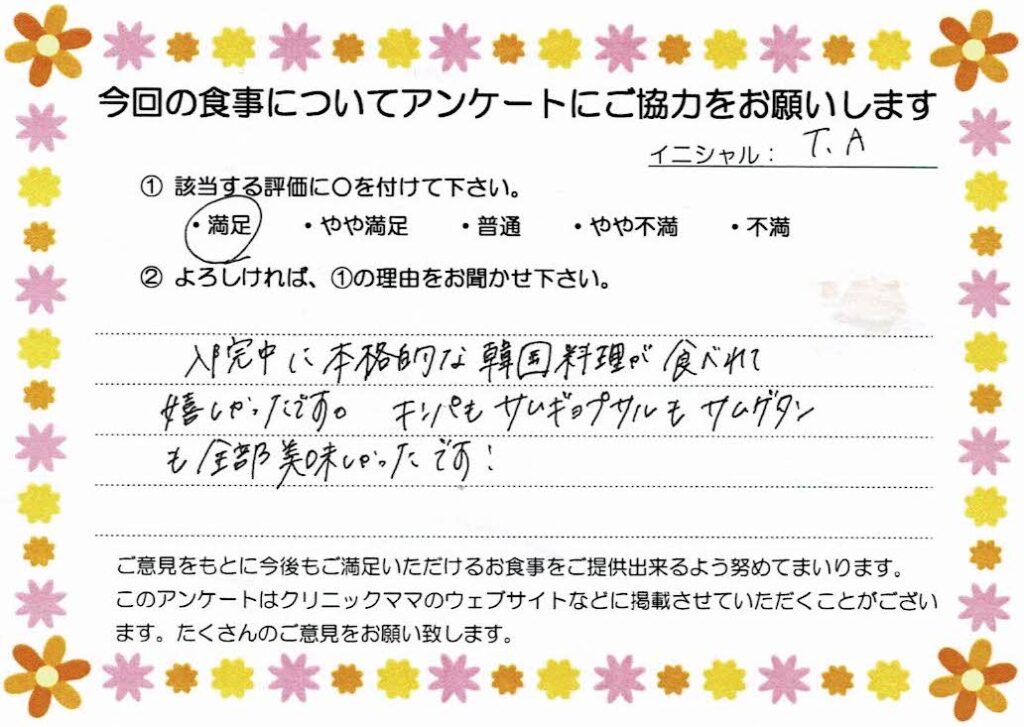 今回の食事についてアンケートにご協力をお願いします
イニシャル： T. A
① 該当する評価に〇を付けて下さい。
・満足 ・やや満足 ・普通 ・やや不満 ・不満
② よろしければ、①の理由をお聞かせ下さい。
入院中に本格的な韓国料理が食べれて
嬉しかったです。 キンパも サムギョプサルも サムゲタン
も全部美味しかったです！
ご意見をもとに今後もご満足いただけるお食事をご提供出来るよう努めてまいります。
このアンケートはクリニックママのウェブサイトなどに掲載させていただくことがござい
ます。たくさんのご意見をお願い致します。